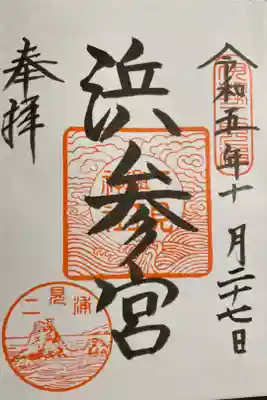 令和五年十月二十七日
浜参宮
奉拝
二見浦